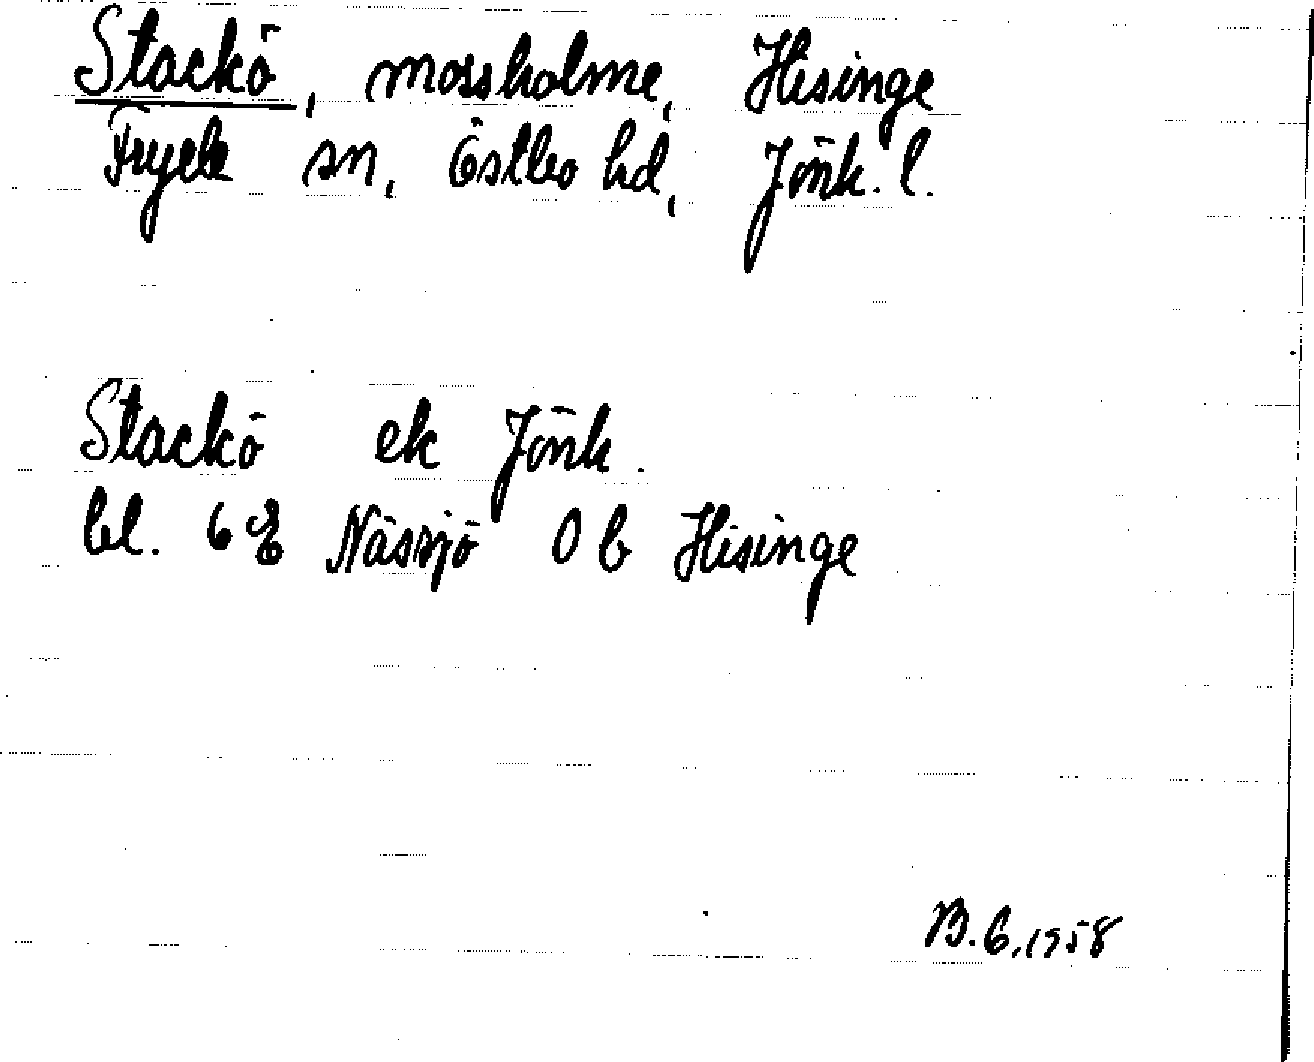 Stackö, mossholme, Hisinge
Fryele sn, Östbo hd, Jönk. l.
Stackö ek Jönk.
bl. Nässjö 0 b Hisinge
B.G. 1958